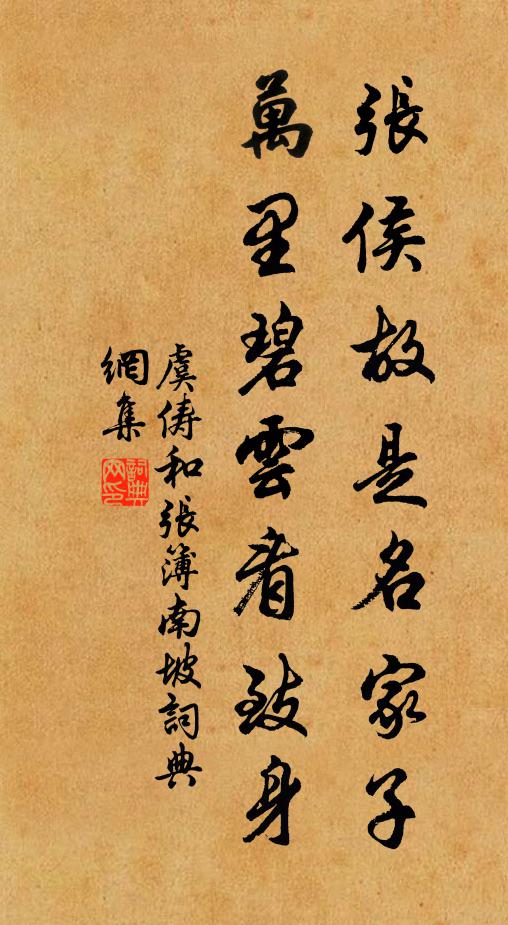 張侯故是名家子
萬里碧雲看致身
虞儔和張簿南坡詞典
網集
詞典網印